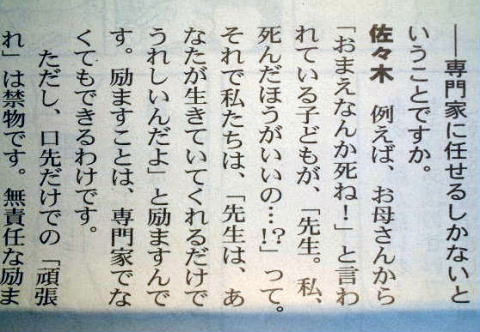 ――専門家に任せるしかないと
いうことですか。
佐々木　例えば、お母さんから
「おまえなんか死ね！」と言わ
れている子どもが、「先生。私、
死んだほうがいいの…!?」って。
それで私たちは、「先生は、あ
なたが生きていてくれるだけで
うれしいんだよ」と励ますんで
す。励ますことは、専門家でな
くてもできるわけです。
　ただし、口先だけでの「頑張
れ」は禁物です。無責任な励ま